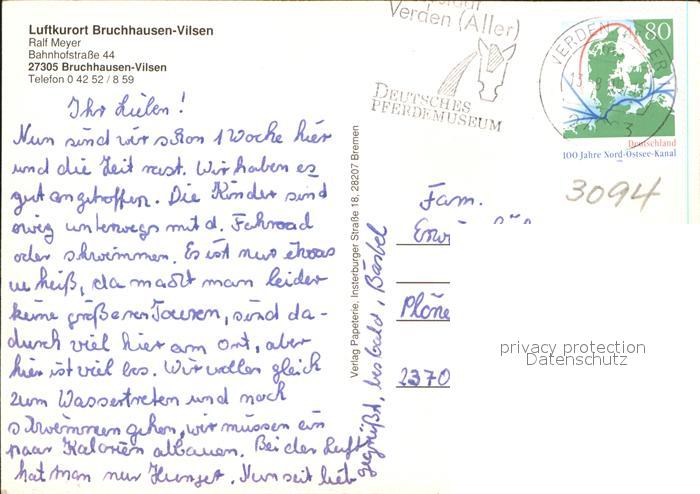 Luftkurort Bruchhausen-Vilsen
Ralf Meyer
Bahnhofstraße 44
27305 Bruchhausen-Vilsen
Telefon 0 42 52 / 8 59
Ihr Lieben!
Nun sind wir schon 1 Woche hier
und die Zeit rast. Wir haben es
gut angetroffen. Die Kinder sind
ewig unterwegs mit d. Fahrrad
oder schwimmen. Es ist nur etwas
zu heiß, da macht man leider
keine größeren Touren, sind da-
durch viel hier am Ort, aber
hier ist viel los. Wir wollen gleich
zum Wassertreten und noch
schwimmen gehen, wir müssen ein
paar Kalorien abbauen. Bei der Luft
hat man nur Hunger. Nun seit lieb
gegrüßt, bis bald, Bärbel
Verlag Papeterie, Insterburger Straße 18, 28207 Bremen
Verden (Aller)
DEUTSCHES
PFERDEMUSEUM
VERDEN
80
Deutschland
100 Jahre Nord-Ostsee-Kanal
3094
Fam.
Plöne
2370
privacy protection
Datenschutz